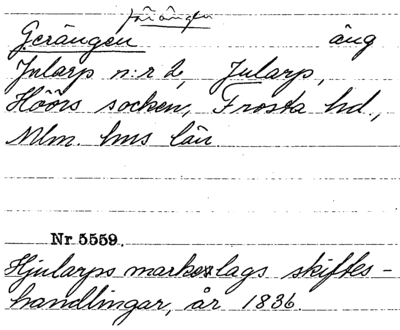 Gerängen äng
Jularp n:r 2, Jularp,
Höörs socken, Frosta hd.,
Mlm. hus län.
Nr. 5559.
Hjularps markeslags skiftes-
handlingar, år 1836.